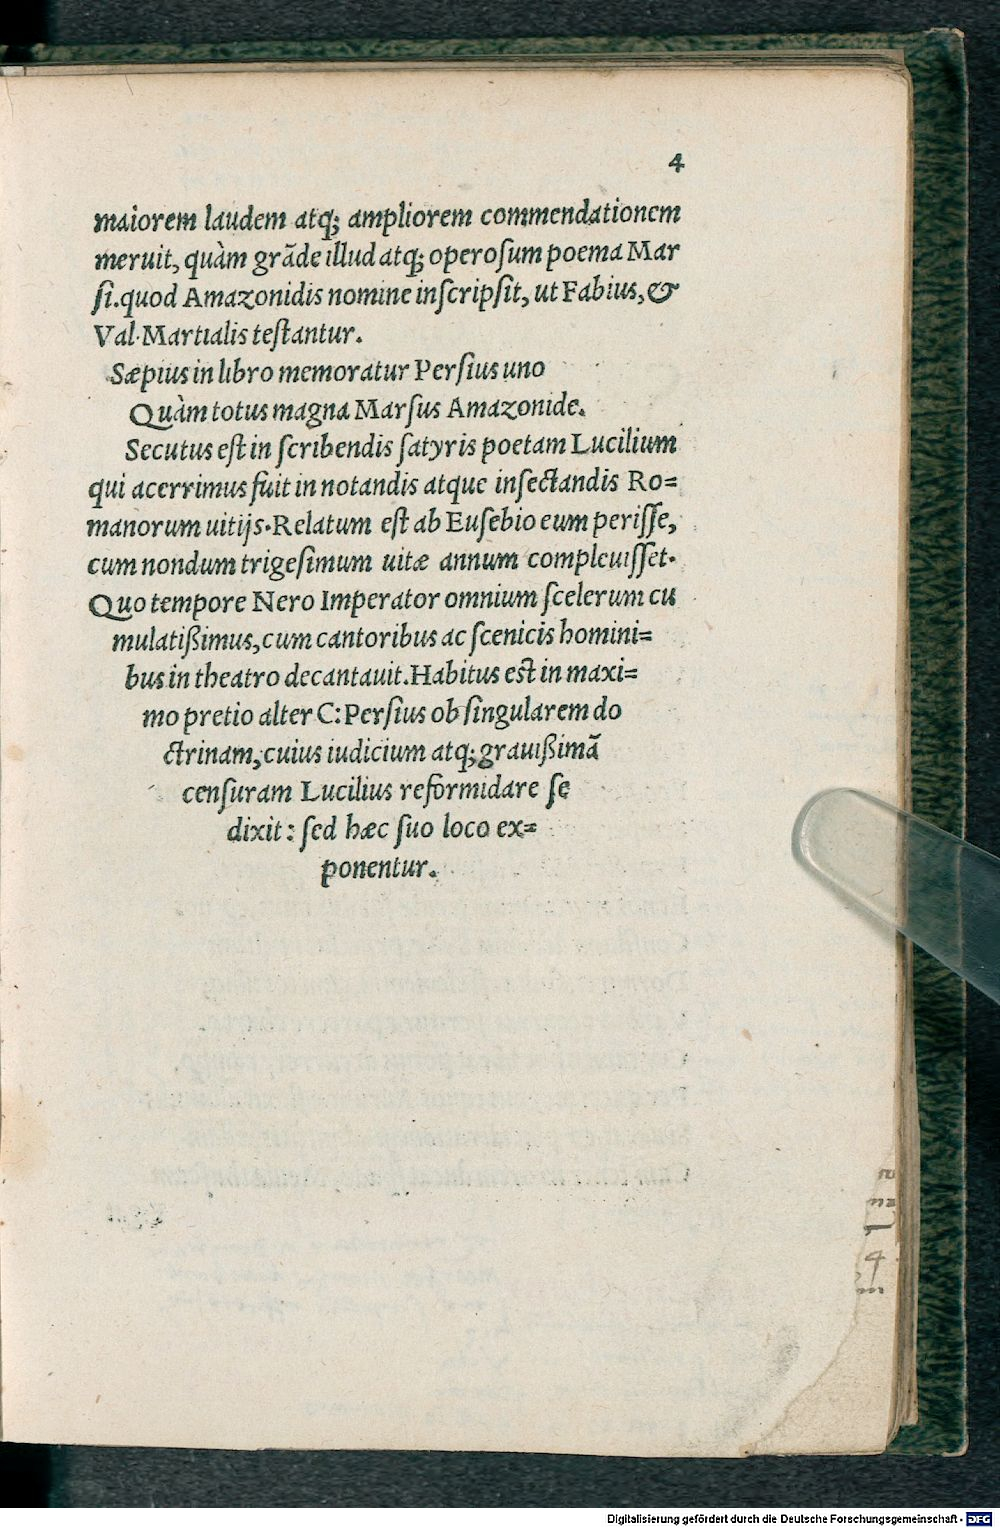 4
maiorem laudem atq; ampliorem commendationem
meruit, quàm grāde illud atq; operoſum poema Mar
ſi.quod Amazonidis nomine inſcripſit, ut Fabius, &
Val·Martialis teſtantur.
Sæpius in libro memoratur Perſius uno
Quàm totus magna Marſus Amazonide.
Secutus eſt in ſcribendis ſatyris poetam Lucilium
qui acerrimus fuit in notandis atque inſectandis Ro=
manorum uitijs·Relatum eſt ab Euſebio eum periſſe,
cum nondum trigeſimum uitæ annum compleuiſſet·
Quo tempore Nero Imperator omnium ſcelerum cu
mulatißimus, cum cantoribus ac ſcenicis homini=
bus in theatro decantauit.Habitus eſt in maxi=
mo pretio alter C: Perſius ob ſingularem do
ctrinam, cuius iudicium atq; grauißimā
cenſuram Lucilius reformidare ſe
dixit: ſed hæc ſuo loco ex=
ponentur.
Digitalisierung gefördert durch die Deutsche Forschungsgemeinschaft - DFG